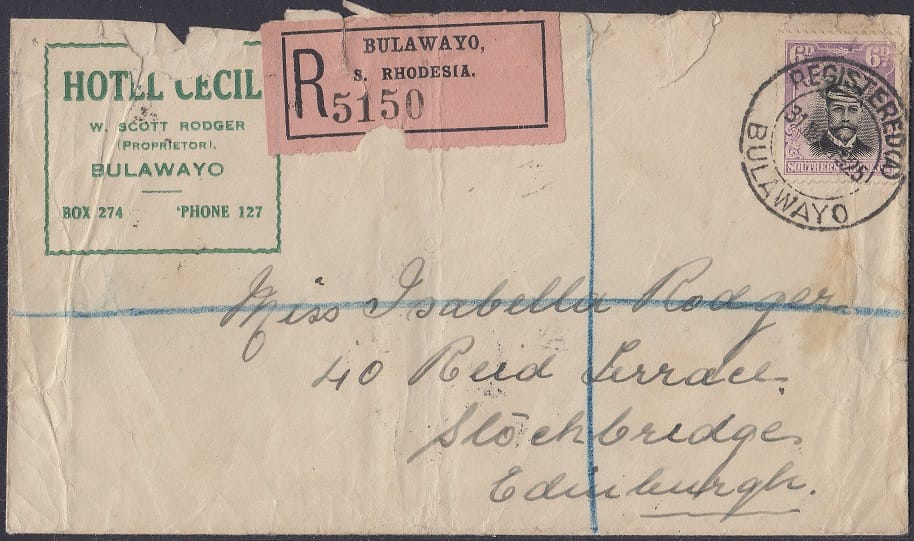 HOTEL CECIL
W. SCOTT RODGER
(PROPRIETOR).
BULAWAYO
BOX 274 'PHONE 127
R
BULAWAYO,
S. RHODESIA.
5150
6D 6D
SOUTHERN
REGISTERED (A)
31
25
BULAWAYO
Miss Isabella Rodger
40 Reid Terrace
Stockbridge
Edinburgh.